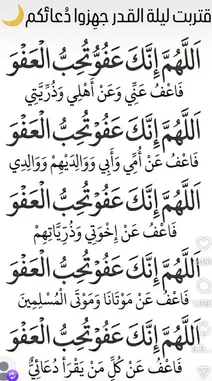 قتربت ليلة القدر جهزوا دُعائكم🌙
اَللَّهُمَّ إِنَّكَ عَفُوٌّ تُحِبُّ الْعَفْوَ
فَاعْفُ عَنِّي وَعَنْ أَهْلِي وَذُرِّيَّتِي
اَللَّهُمَّ إِنَّكَ عَفُوٌّ تُحِبُّ الْعَفْوَ
فَاعْفُ عَنْ أُمِّي وَأَبِي وَوَالِدَيْهِمْ وَوَالِدِي
اَللَّهُمَّ إِنَّكَ عَفُوٌّ تُحِبُّ الْعَفْوَ
فَاعْفُ عَنْ إِخْوَتِي وَذُرِّيَّاتِهِمْ
اَللَّهُمَّ إِنَّكَ عَفُوٌّ تُحِبُّ الْعَفْوَ
فَاعْفُ عَنْ مَوْتَانَا وَمَوْتَى الْمُسْلِمِينَ
اَللَّهُمَّ إِنَّكَ عَفُوٌّ تُحِبُّ الْعَفْوَ
فَاعْفُ عَنْ كُلِّ مَنْ يَقْرَأُ دُعَائِيْ